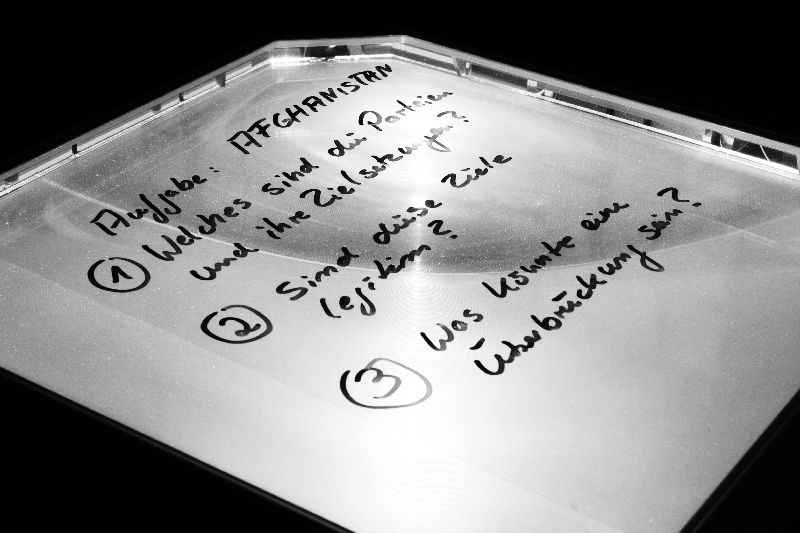 Aufgabe: AFGHANISTAN
1 Welches sind die Parteien
und ihre Zielsetzungen?
2 Sind diese Ziele
legitim?
3 Was könnte eine
Überbrückung sein?